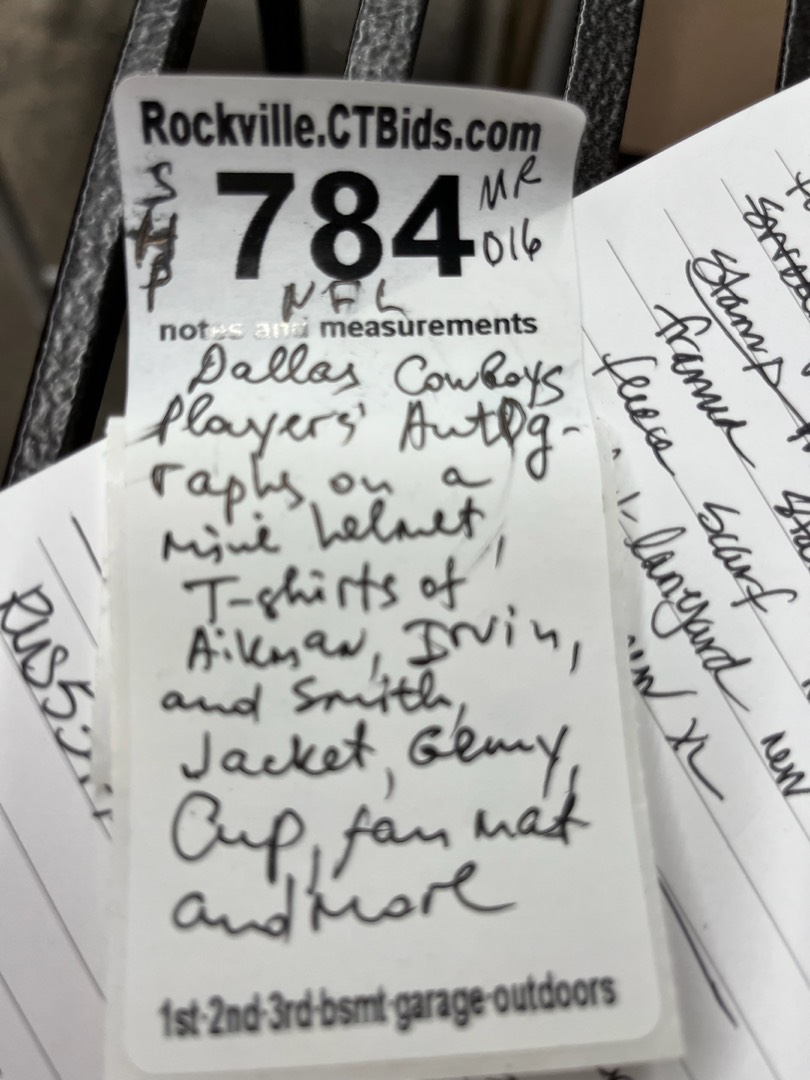 Rockville.CTBids.com
784
MR
016
NFL
notes and measurements
Dallas Cowboys
Players' Autog-
raphs on a
mini helmet,
T-shirts of
Aikman, Irvin,
and Smith,
Jacket,
Cup, fan mat
and more
1st-2nd-3rd-bsmt-garage-outdoors
Stamp
framed
fleece scarf
lanyard new
XL